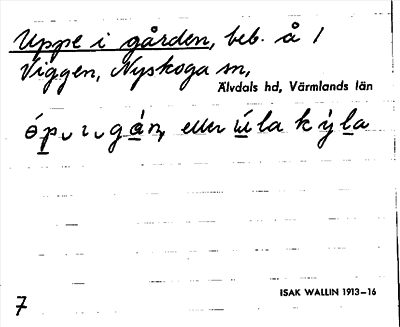 Uppe i gården, beb. å 1
Viggen, Nyskoga sn,
Älvdals hd, Värmlands län
ó́p̲ ̮ı ̮gá̲n, eller ú̲la k ý l̲a
ISAK WALLIN 1913–16
7